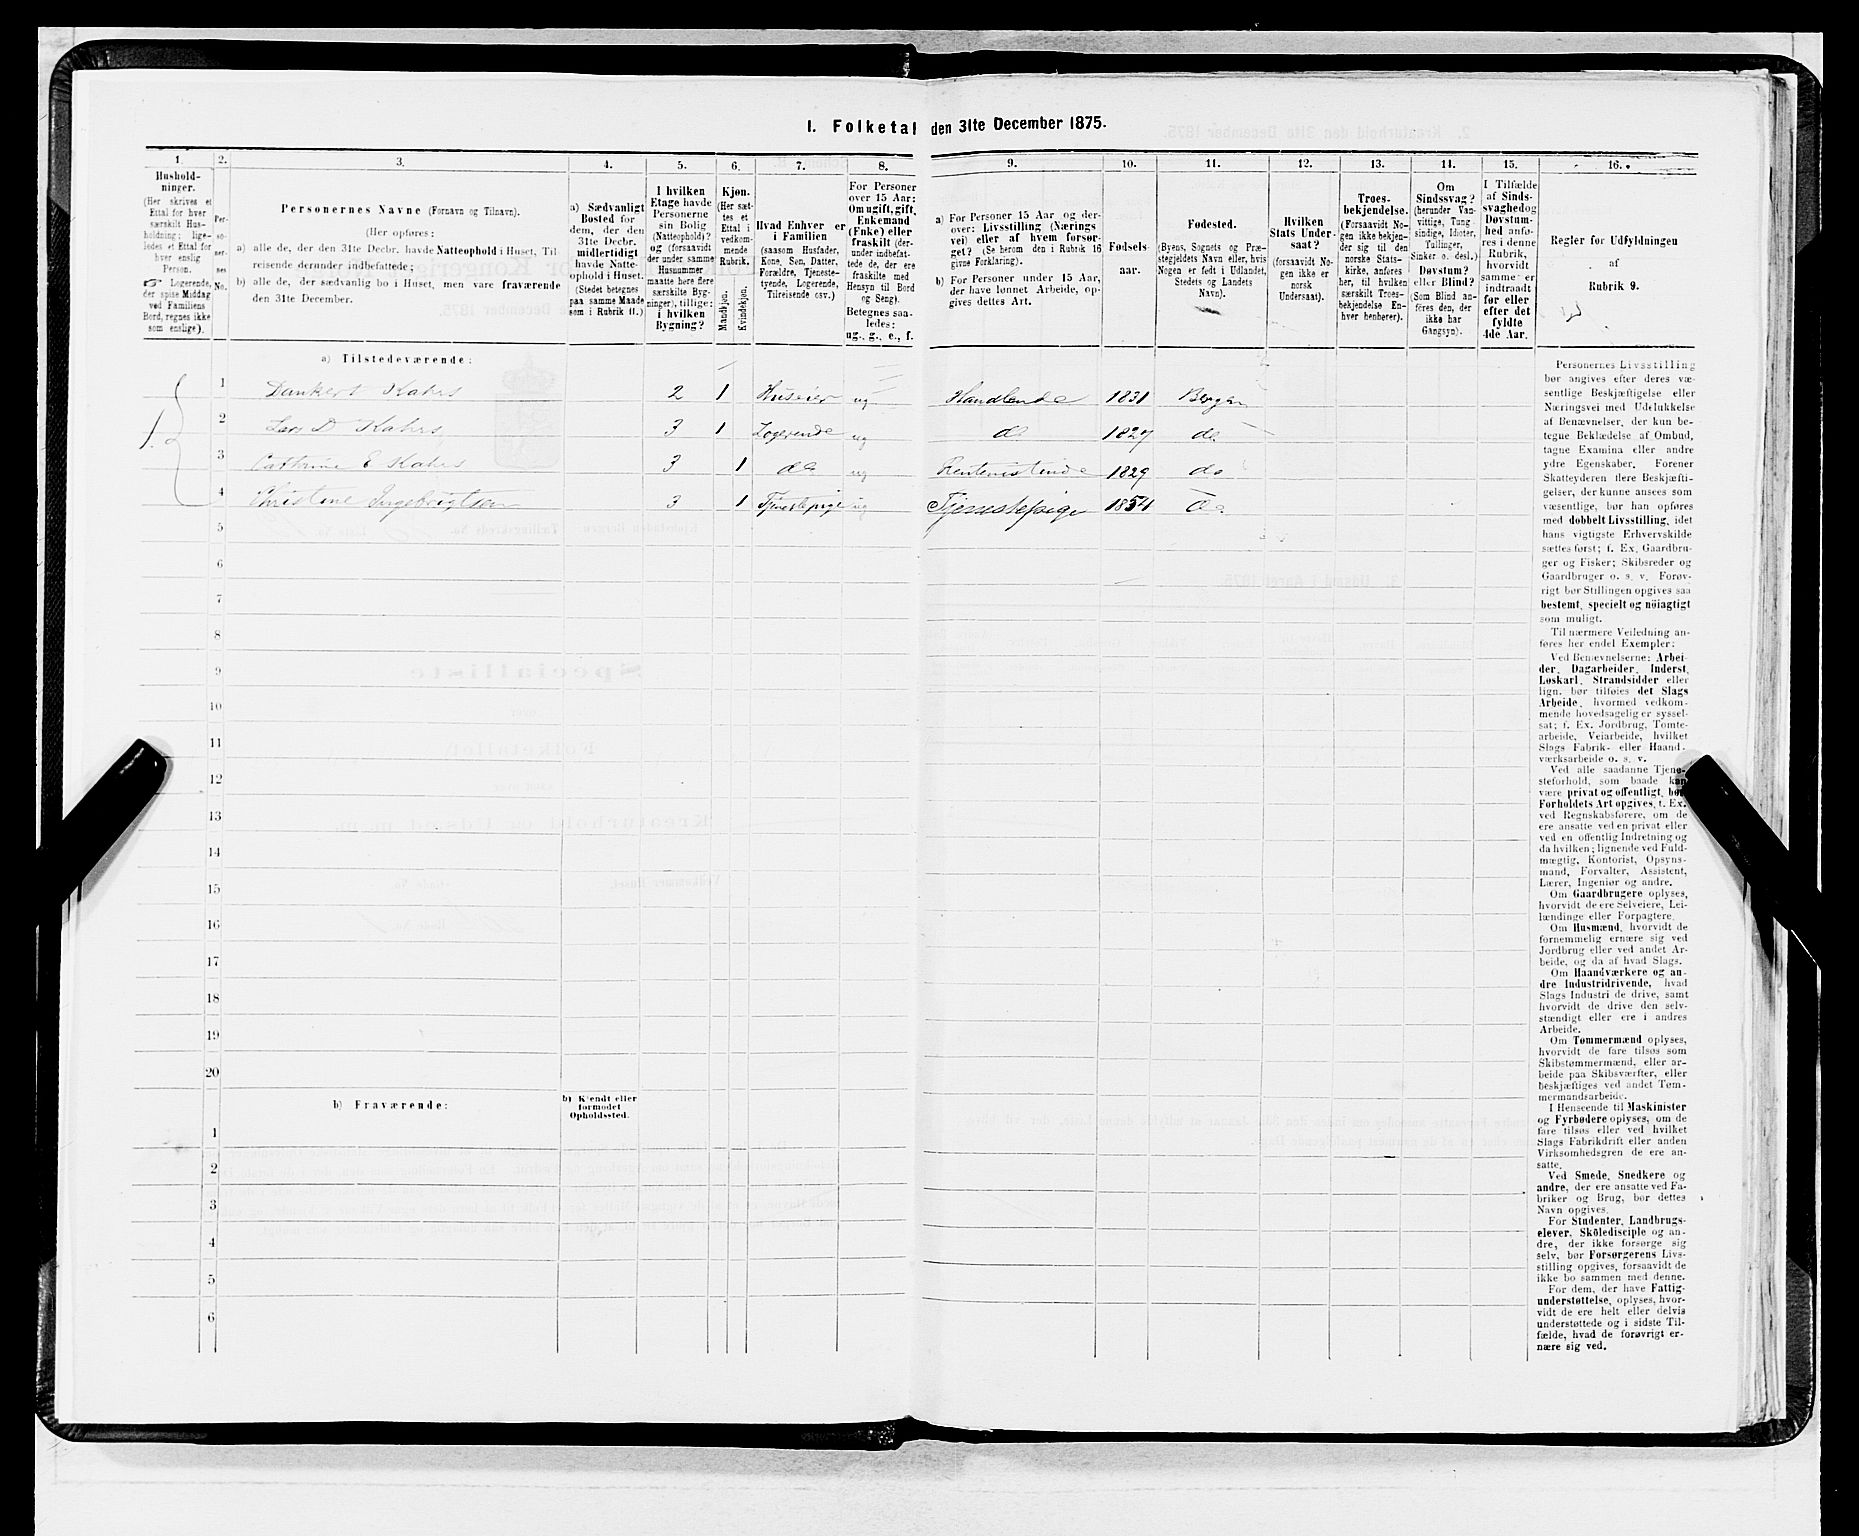 1. Folketal den 31te December 1875.
1. 2. 3. 4. 5. 6. 7. 8. 9. 10. 11. 12. 13. 14. 15. 16.
Hushold-
ninger.
(Her skrives et
Ettal for hver
særskilt Hus-
holdning; lige-
ledes et Ettal for
hver enslig
Person.
Logerende,
der spise Middag
ved Familiens
Bord, regnes ikke
som enslige).
Per-
so-
ner-
nes
No.
Personernes Navne (Fornavn og Tilnavn).
(Her opføres:
a) alle de, der den 31te Decbr. havde Natteophold i Huset, Til
reisende derunder indbefattede;
b) alle de, der sædvanlig bo i Huset, men vare fraværende
den 31te December.
a) Sædvanligt
Bosted for
dem, der den
31te Decbr.
midlertidigt
havde Natte-
ophold i Huset.
(Stedet betegnes
paa samme Maade
som i Rubrik 11.)
I hvilken
Etage havde
Personerne
sin Bolig
(Natteophold)?
og (forsaavidt
der under samme
Husnummer
maatte høre flere
særskilte Byg-
ninger), tillige:
i hvilken
Bygning?
Kjøn.
(Her sæt-
tes et
Ettal i
vedkom-
mende
Rubrik.
Mandkjøn.
Kvindekjøn.
Hvad Enhver er
i Familien
(saasom Husfader,
Kone, Søn, Datter,
Forældre, Tjeneste-
tyende, Logerende,
Tilreisende osv.)
For Personer
over 15 Aar:
Om ugift, gift,
Enkemand
(Enke) eller
fraskilt (der-
under indbefat-
tede de, der ere
fraskilte med
Hensyn til Bord
og Seng).
Betegnes saa-
ledes:
ug., g., e., f.
a) For Personer 15 Aar og der-
over: Livsstilling (Nærings
vei) eller af hvem forsør-
get? (Se herom den i Rubrik 16
givne Forklaring).
b) For Personer under 15 Aar,
der have lønnet Arbeide, op-
gives dettes Art.
Fødsels-
aar.
Fødested.
(Byens, Sognets og Præ-
stegjeldets Navn eller, hvis
Nogen er født i Udlandet,
Stedets og Landets
Navn).
Hvilken
Stats Under-
saat?
(forsaavidt No-
gen ikke er
norsk
Undersaat).
Troes-
bekjendelse.
(Forsaavidt No-
gen ikke bekjen-
der sig til den
norske Stats-
kirke, anføres
her, til hvilken
særskilt Troes-
bekjendelse En-
hver henhører).
Om
Sindssvag?
(herunder Van-
vittige, Tung
sindige, Idioter,
Tullinger,
Sinker o. desl.)
Døvstum?
eller Blind?
(Som Blind an-
føres den, der
ikke har
Gangsyn).
I Tilfælde
af Sinds-
svaghed og
Døvstum-
hed anfø-
res i denne
Rubrik,
hvorvidt
samme er
indtraadt
før eller
efter det
fyldte
4de Aar.
Regler for Udfyldningen
af
Rubrik 9.
a) Tilstedeværende:
1 Dankert Kahrs 2 1 Huseier ug Handlende 1831 Bergen
2 Lars D Kahrs 3 1 Logerende ug do 1827 do
3 Cathrine E Kahrs 3 1 do ug Rentenistinde 1829 do
4 Christine Ingebrigtsen 3 1 Tjenestepige ug Tjenestepige 1854 do
5
6
7
8
9
10
11
12
13
14
15
16
17
18
19
20
b) Fraværende:
b) Kjendt eller
formodet
Opholdssted.
1
2
3
4
5
6
Personernes Livsstilling
bør angives efter deres væ-
sentlige Beskjæftigelse eller
Næringsvei med Udelukkelse
af Benævnelser, der kun be-
tegne Beklædelse af Ombud,
tagne Examina eller andre
ydre Egenskaber. Forener
Skatteyderen flere Beskjæfti-
gelser, der kunne ansees som
væsentlige, bør han opføres
med dobbelt Livsstilling, idet
hans vigtigste Erhvervskilde
sættes først; f. Ex. Gaardbru-
ger og Fisker; Skibsreder og
Gaardbruger o. s. v. Forøv-
rigt bør Stillingen opgives saa
bestemt, specielt og nöiagtigt
som muligt.
Til nærmere Veiledning an-
føres her endel Exempler:
Ved Benævnelserne: Arbei-
der, Dagarbeider, Inderst,
Løskarl, Strandsidder eller
lign. bør tilføies det Slags
Arbeide, hvormed vedkom-
mende hovedsagelig er syssel-
sat; f. Ex. Jordbrug, Tomte-
arbeide, Veiarbeide, hvilket
Slags Fabrik- eller Haand-
værksarbeide o. s. v.
Ved alle saadanne Tjene-
steforhold, som baade kan
være privat og offentligt, bør
Forholdets Art opgives, f. Ex.
ved Regnskabsførere, om de
ere ansatte ved en privat eller
ved en offentlig Indretning og
da hvilken; lignende ved Fuld-
mægtig, Kontorist, Opsyns-
mand, Forvalter, Assistent,
Lærer, Ingeniør og andre.
Om Gaardbrugere oplyses,
hvorvidt de ere Selveiere, Lei-
lændinge eller Forpagtere.
Om Husmænd, hvorvidt de
fornemmelig ernære sig ved
Jordbrug eller ved andet Ar-
beide, og da af hvad Slags.
Om Haandværkere og an-
dre Industridrivende, hvad
Slags Industri de drive, samt
hvorvidt de drive den selv-
stændigt eller ere i andres
Arbeide.
Om Tømmermænd oplyses,
hvorvidt de fare tilsøs som
Skibstømmermænd, eller ar-
beide paa Skibsværfter, eller
beskjæftiges ved andet Tøm-
mermandsarbeide.
I Henseende til Maskinister
og Fyrbødere oplyses, om de
fare tilsøs eller ved hvilket
Slags Fabrikdrift eller anden
Virksomhedsgren de ere an-
satte.
Ved Smede, Snedkere og
andre, der ere ansatte ved Fa-
briker og Brug, bør dettes
Navn opgives.
For Studenter, Landbrugs-
elever, Skoledisciple og an-
dre, der ikke forsørge sig
selv, bør Forsørgerens Livs-
stilling opgives, forsaavidt de
ikke bo sammen med denne.
For dem, der have Fattig-
understøttelse, oplyses, hvor-
vidt de ere helt eller delvis
understøttede og i sidste Til-
fælde, hvad de forøvrigt er-
nære sig ved.